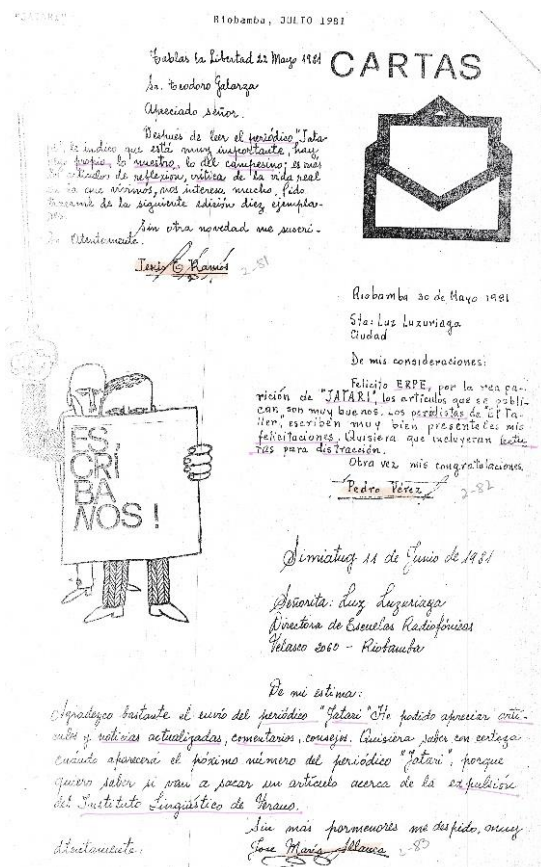 "JATARI"
Riobamba, JULIO 1981
CARTAS
Tablas la Libertad 22 Mayo 1981
Sr. Teodoro Galarza
Apreciado señor.
Después de leer el periódico "Jata-
le indico que está muy importante, hay
propio, lo nuestro, lo del campesino; es más
artículos de reflexión, crítica de la vida real
la que vivimos, nos interesa mucho. Pido
de la siguiente edición diez ejempla-
Sin otra novedad me suscri-
Atentamente.
Jesús E Ramos
2-81
Riobamba 30 de Mayo 1981
Sta: Luz Luzuriaga
Ciudad
De mis consideraciones:
Felicito ERPE, por la reapa-
rición de "JATARI", los artículos que se publi-
can son muy buenos. Los periodistas de "El Ta-
ller", escriben muy bien presenteles mis
felicitaciones. Quisiera que incluyeran lectu-
ras para distracción.
Otra vez mis congratulaciones.
Pedro Pérez
2-82
ES,
CRÍ
BA
NOS!
Simiatug 11 de Junio de 1981
Señorita: Luz Luzuriaga
Directora de Escuelas Radiofónicas
Velasco 2060 - Riobamba
De mi estima:
Agradezco bastante el envío del periódico "Jatari" He podido apreciar artí-
culos y noticias actualizadas, comentarios, consejos. Quisiera saber con certeza
cuándo aparecerá el próximo número del periódico "Jatari", porque
quiero saber si van a sacar un artículo acerca de la expulsión
del Instituto Lingüístico de Verano.
Sin más pormenores me despido, muy
Atentamente:
José María Allauca
2-83